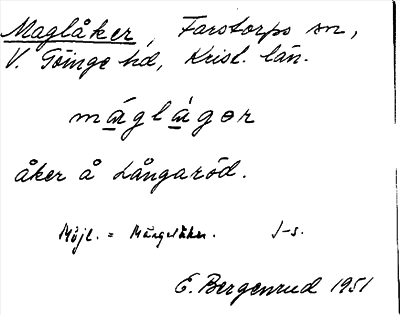 Maglåker, Farstorps sn,
V. Göinge hd, Krist. län.
máglágər
åker å Långaröd.
Möjl. = Mängelåker. J-s.
E. Bergenrud 1951